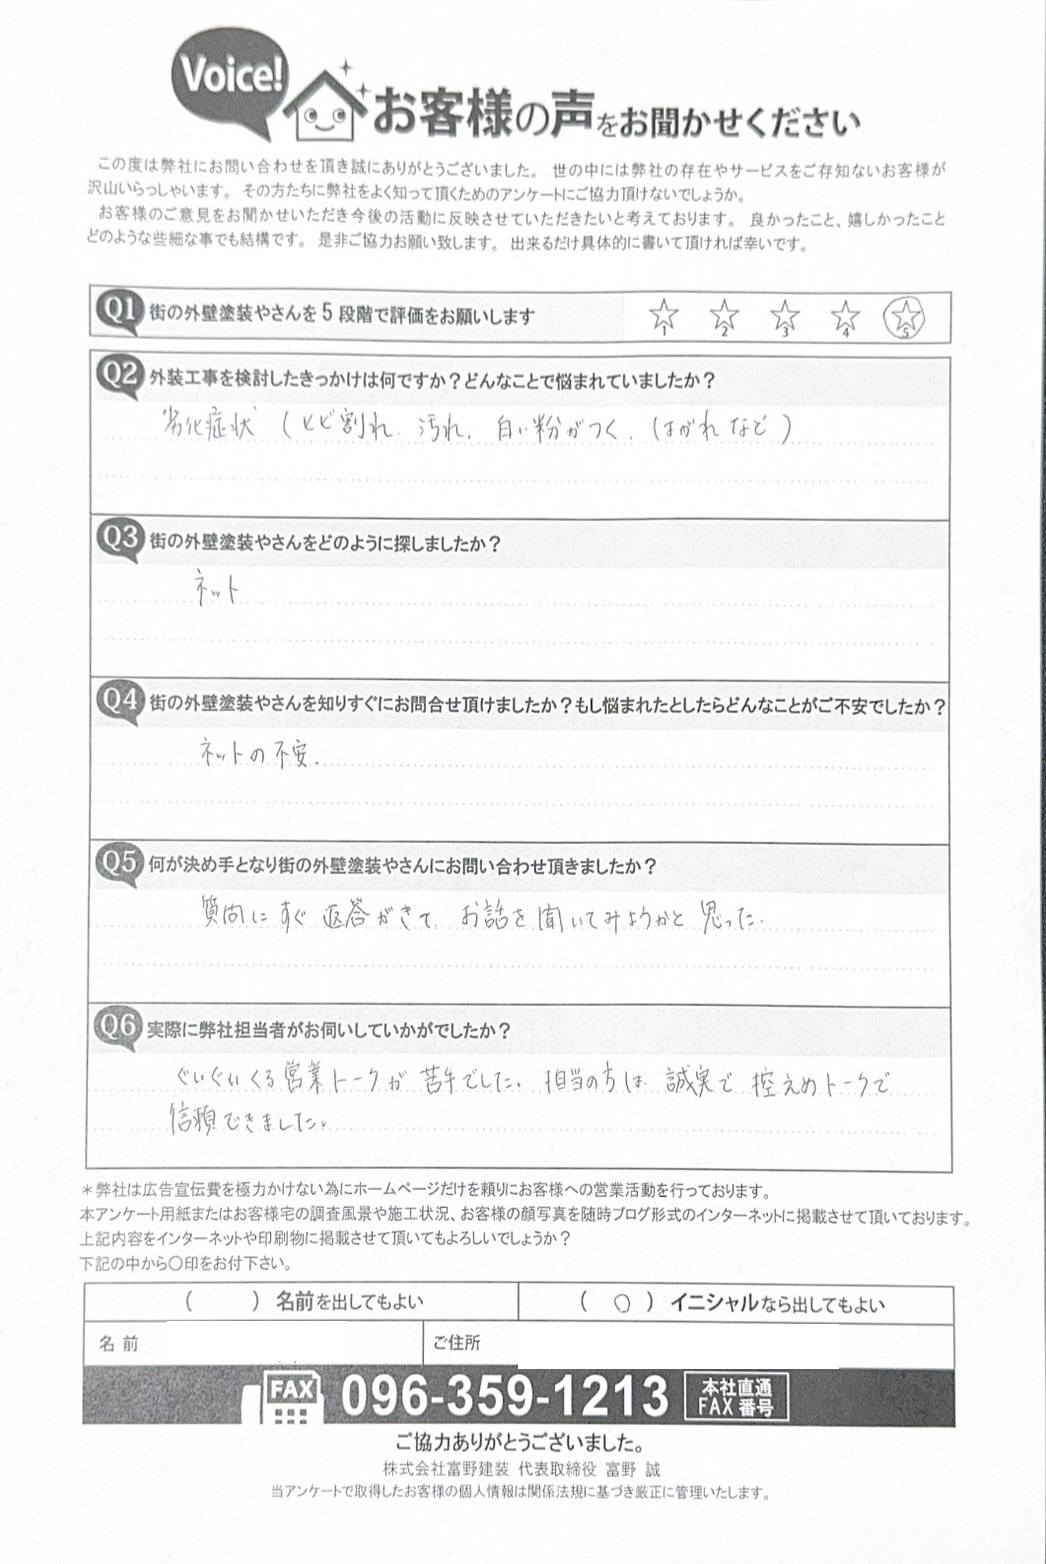 Voice!
お客様の声をお聞かせください
この度は弊社にお問い合わせを頂き誠にありがとうございました。 世の中には弊社の存在やサービスをご存知ないお客様が
沢山いらっしゃいます。 その方たちに弊社をよく知って頂くためのアンケートにご協力頂けないでしょうか。
お客様のご意見をお聞かせいただき今後の活動に反映させていただきたいと考えております。 良かったこと、嬉しかったこと
どのような些細な事でも結構です。 是非ご協力お願い致します。 出来るだけ具体的に書いて頂ければ幸いです。
Q1 街の外壁塗装やさんを5段階で評価をお願いします ☆1 ☆2 ☆3 ☆4 ☆5
Q2 外装工事を検討したきっかけは何ですか？どんなことで悩まれていましたか？
劣化症状 (ヒビ割れ、汚れ、白い粉がつく、はがれなど)
Q3 街の外壁塗装やさんをどのように探しましたか？
ネット
Q4 街の外壁塗装やさんを知りすぐにお問合せ頂けましたか？もし悩まれたとしたらどんなことがご不安でしたか？
ネットの不安.
Q5 何が決め手となり街の外壁塗装やさんにお問い合わせ頂きましたか？
質問にすぐ返答がきて、お話を聞いてみようかと思った.
Q6 実際に弊社担当者がお伺いしていかがでしたか？
ぐいぐいくる営業トークが苦手でした。担当の方は、誠実で控えめトークで
信頼できました。
＊弊社は広告宣伝費を極力かけない為にホームページだけを頼りにお客様への営業活動を行っております。
本アンケート用紙またはお客様宅の調査風景や施工状況、お客様の顔写真を随時ブログ形式のインターネットに掲載させて頂いております。
上記内容をインターネットや印刷物に掲載させて頂いてもよろしいでしょうか？
下記の中から〇印をお付下さい。
(　　) 名前を出してもよい (○) イニシャルなら出してもよい
名前 ご住所
FAX 096-359-1213 本社直通
FAX番号
ご協力ありがとうございました。
株式会社富野建装 代表取締役 富野 誠
当アンケートで取得したお客様の個人情報は関係法規に基づき厳正に管理いたします。